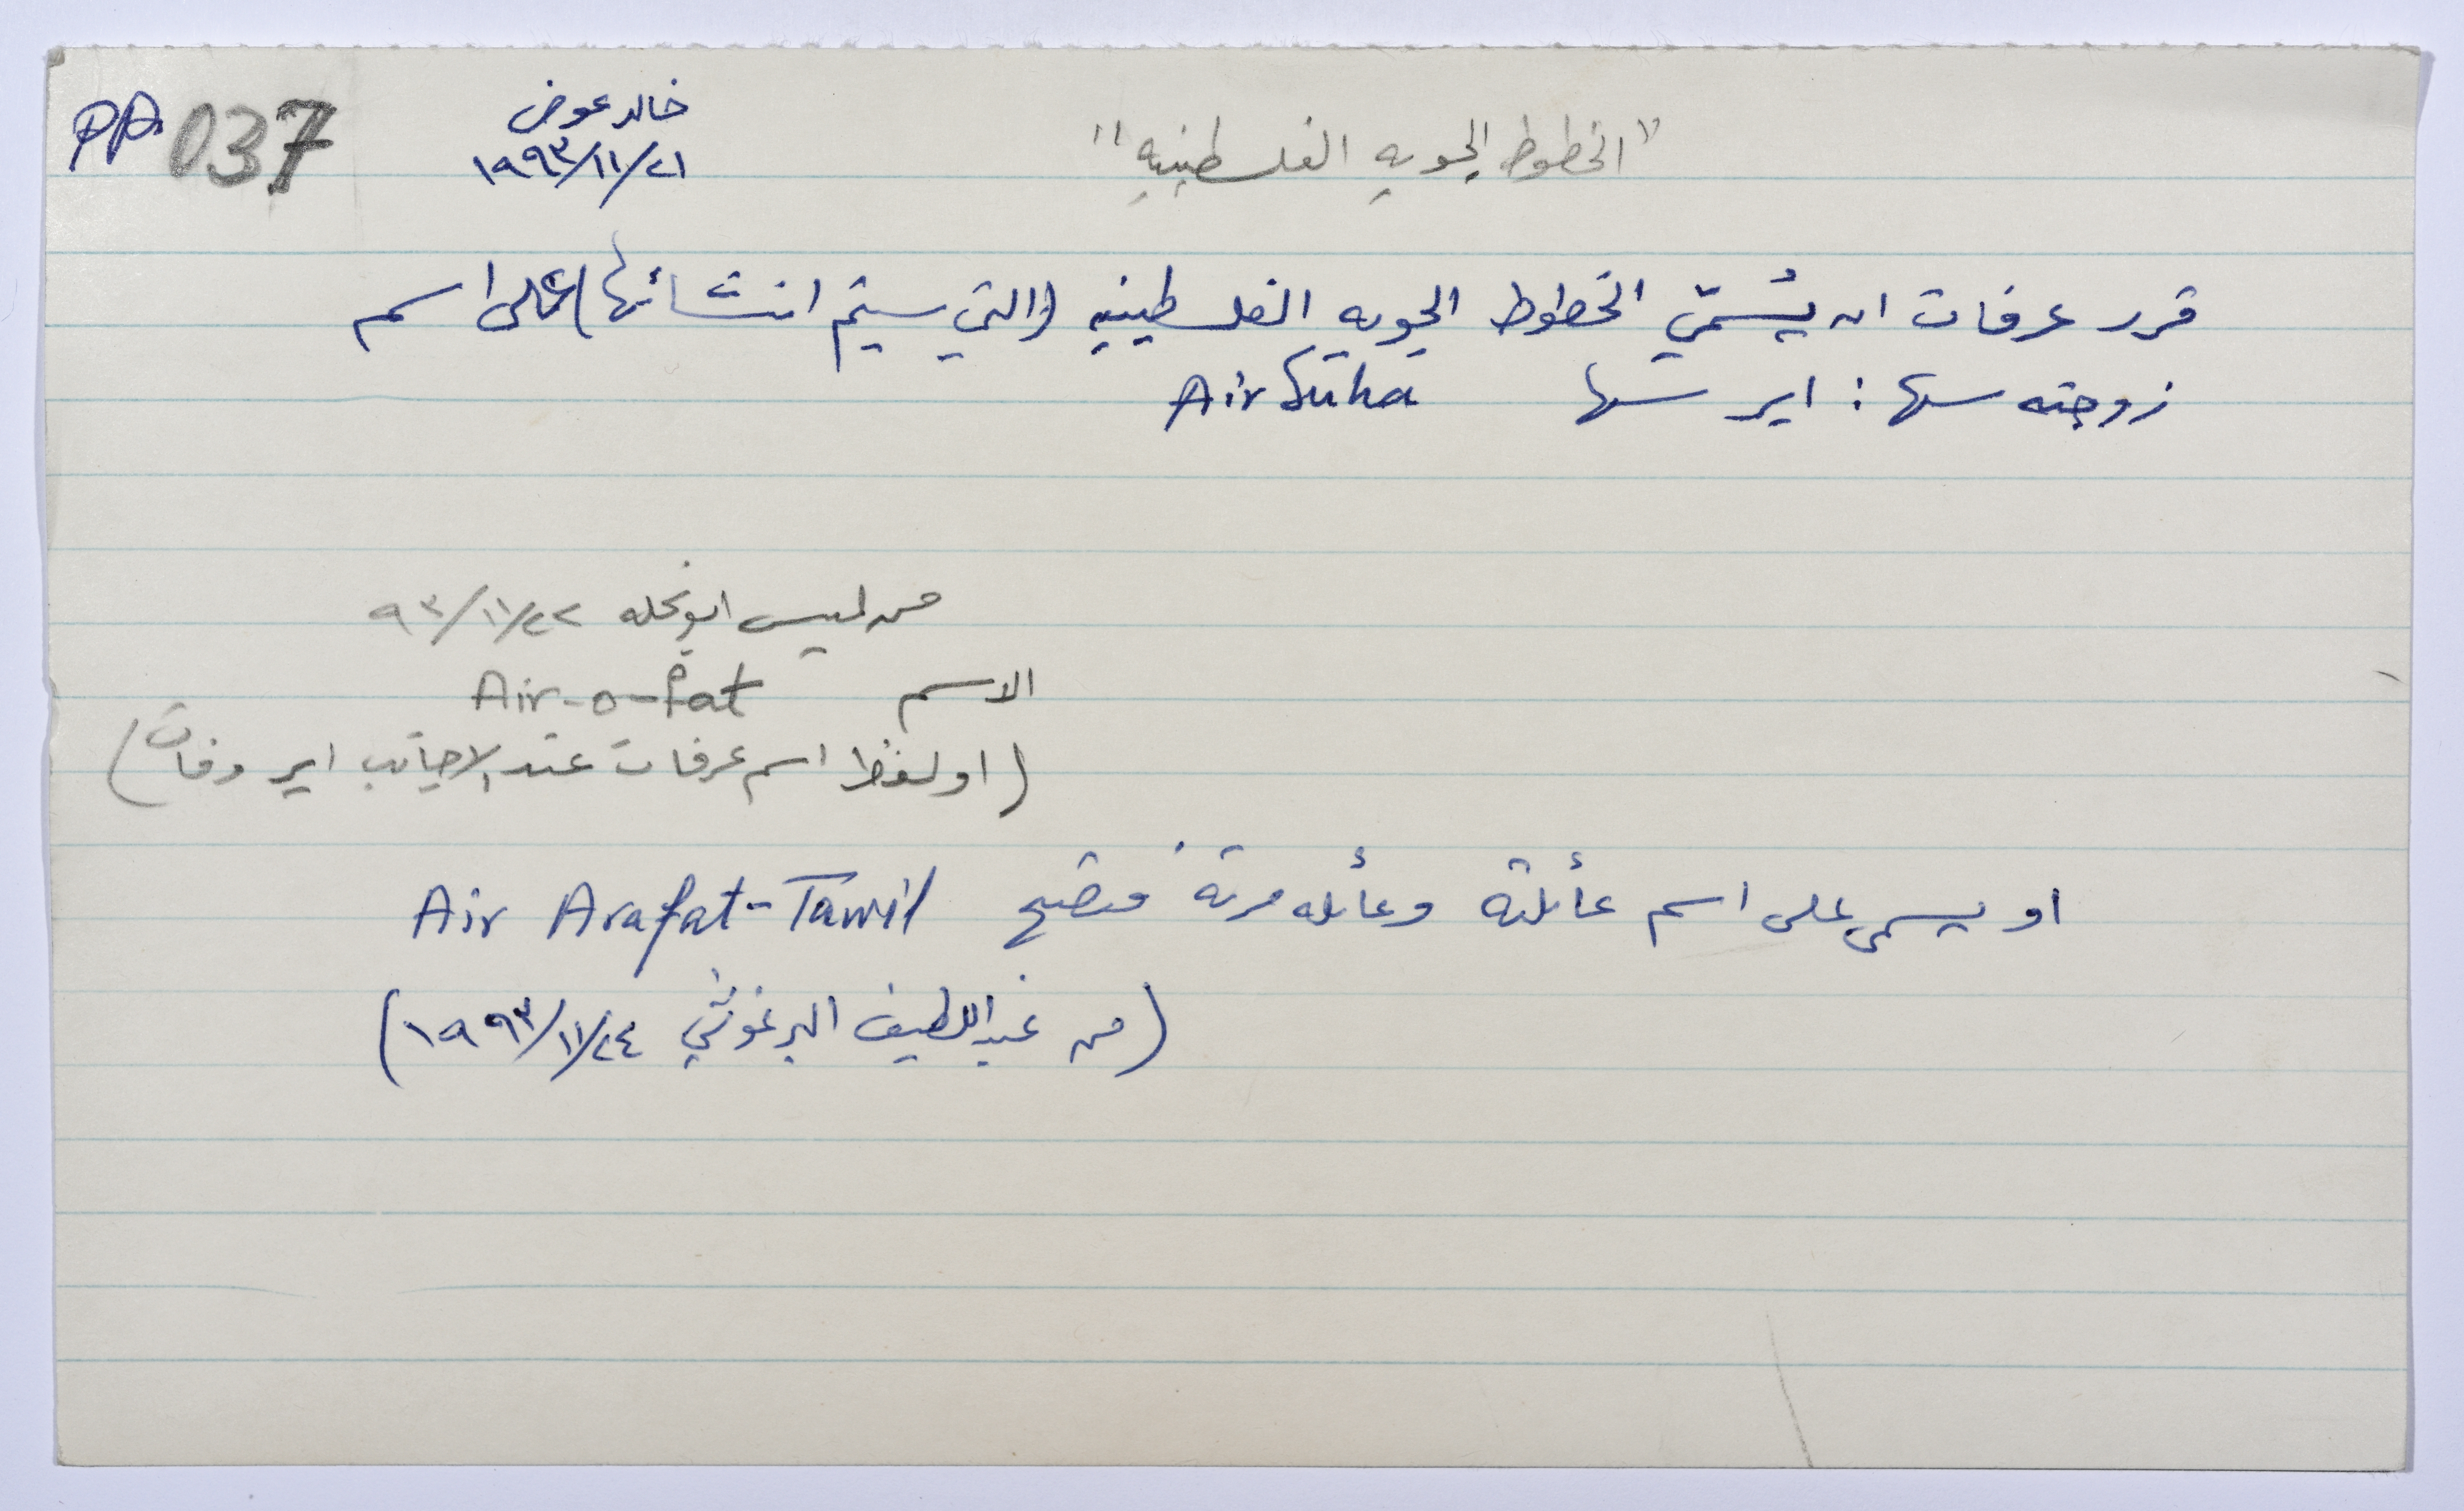 PA 037
خالد عوض
٢١/١١/١٩٩٣
"الخطوط الجويه الفلسطينيه"
قرر عرفات ان يُسمّي الخطوط الجويه الفلسطينيه (التي سيتم انشائها) على اسم
زوجته سها : اير سها Air Suha
من لميس ابو نحله ٢٢/١١/٩٣
الاسم Air-o-fat
(او لفظ اسم عرفات عند الاجانب اير وفات)
او يسمى على اسم عائلته وعائله مرته فتصبح Air Arafat-Tawil
(من عبداللطيف البرغوثي ٢٤/١١/١٩٩٣)